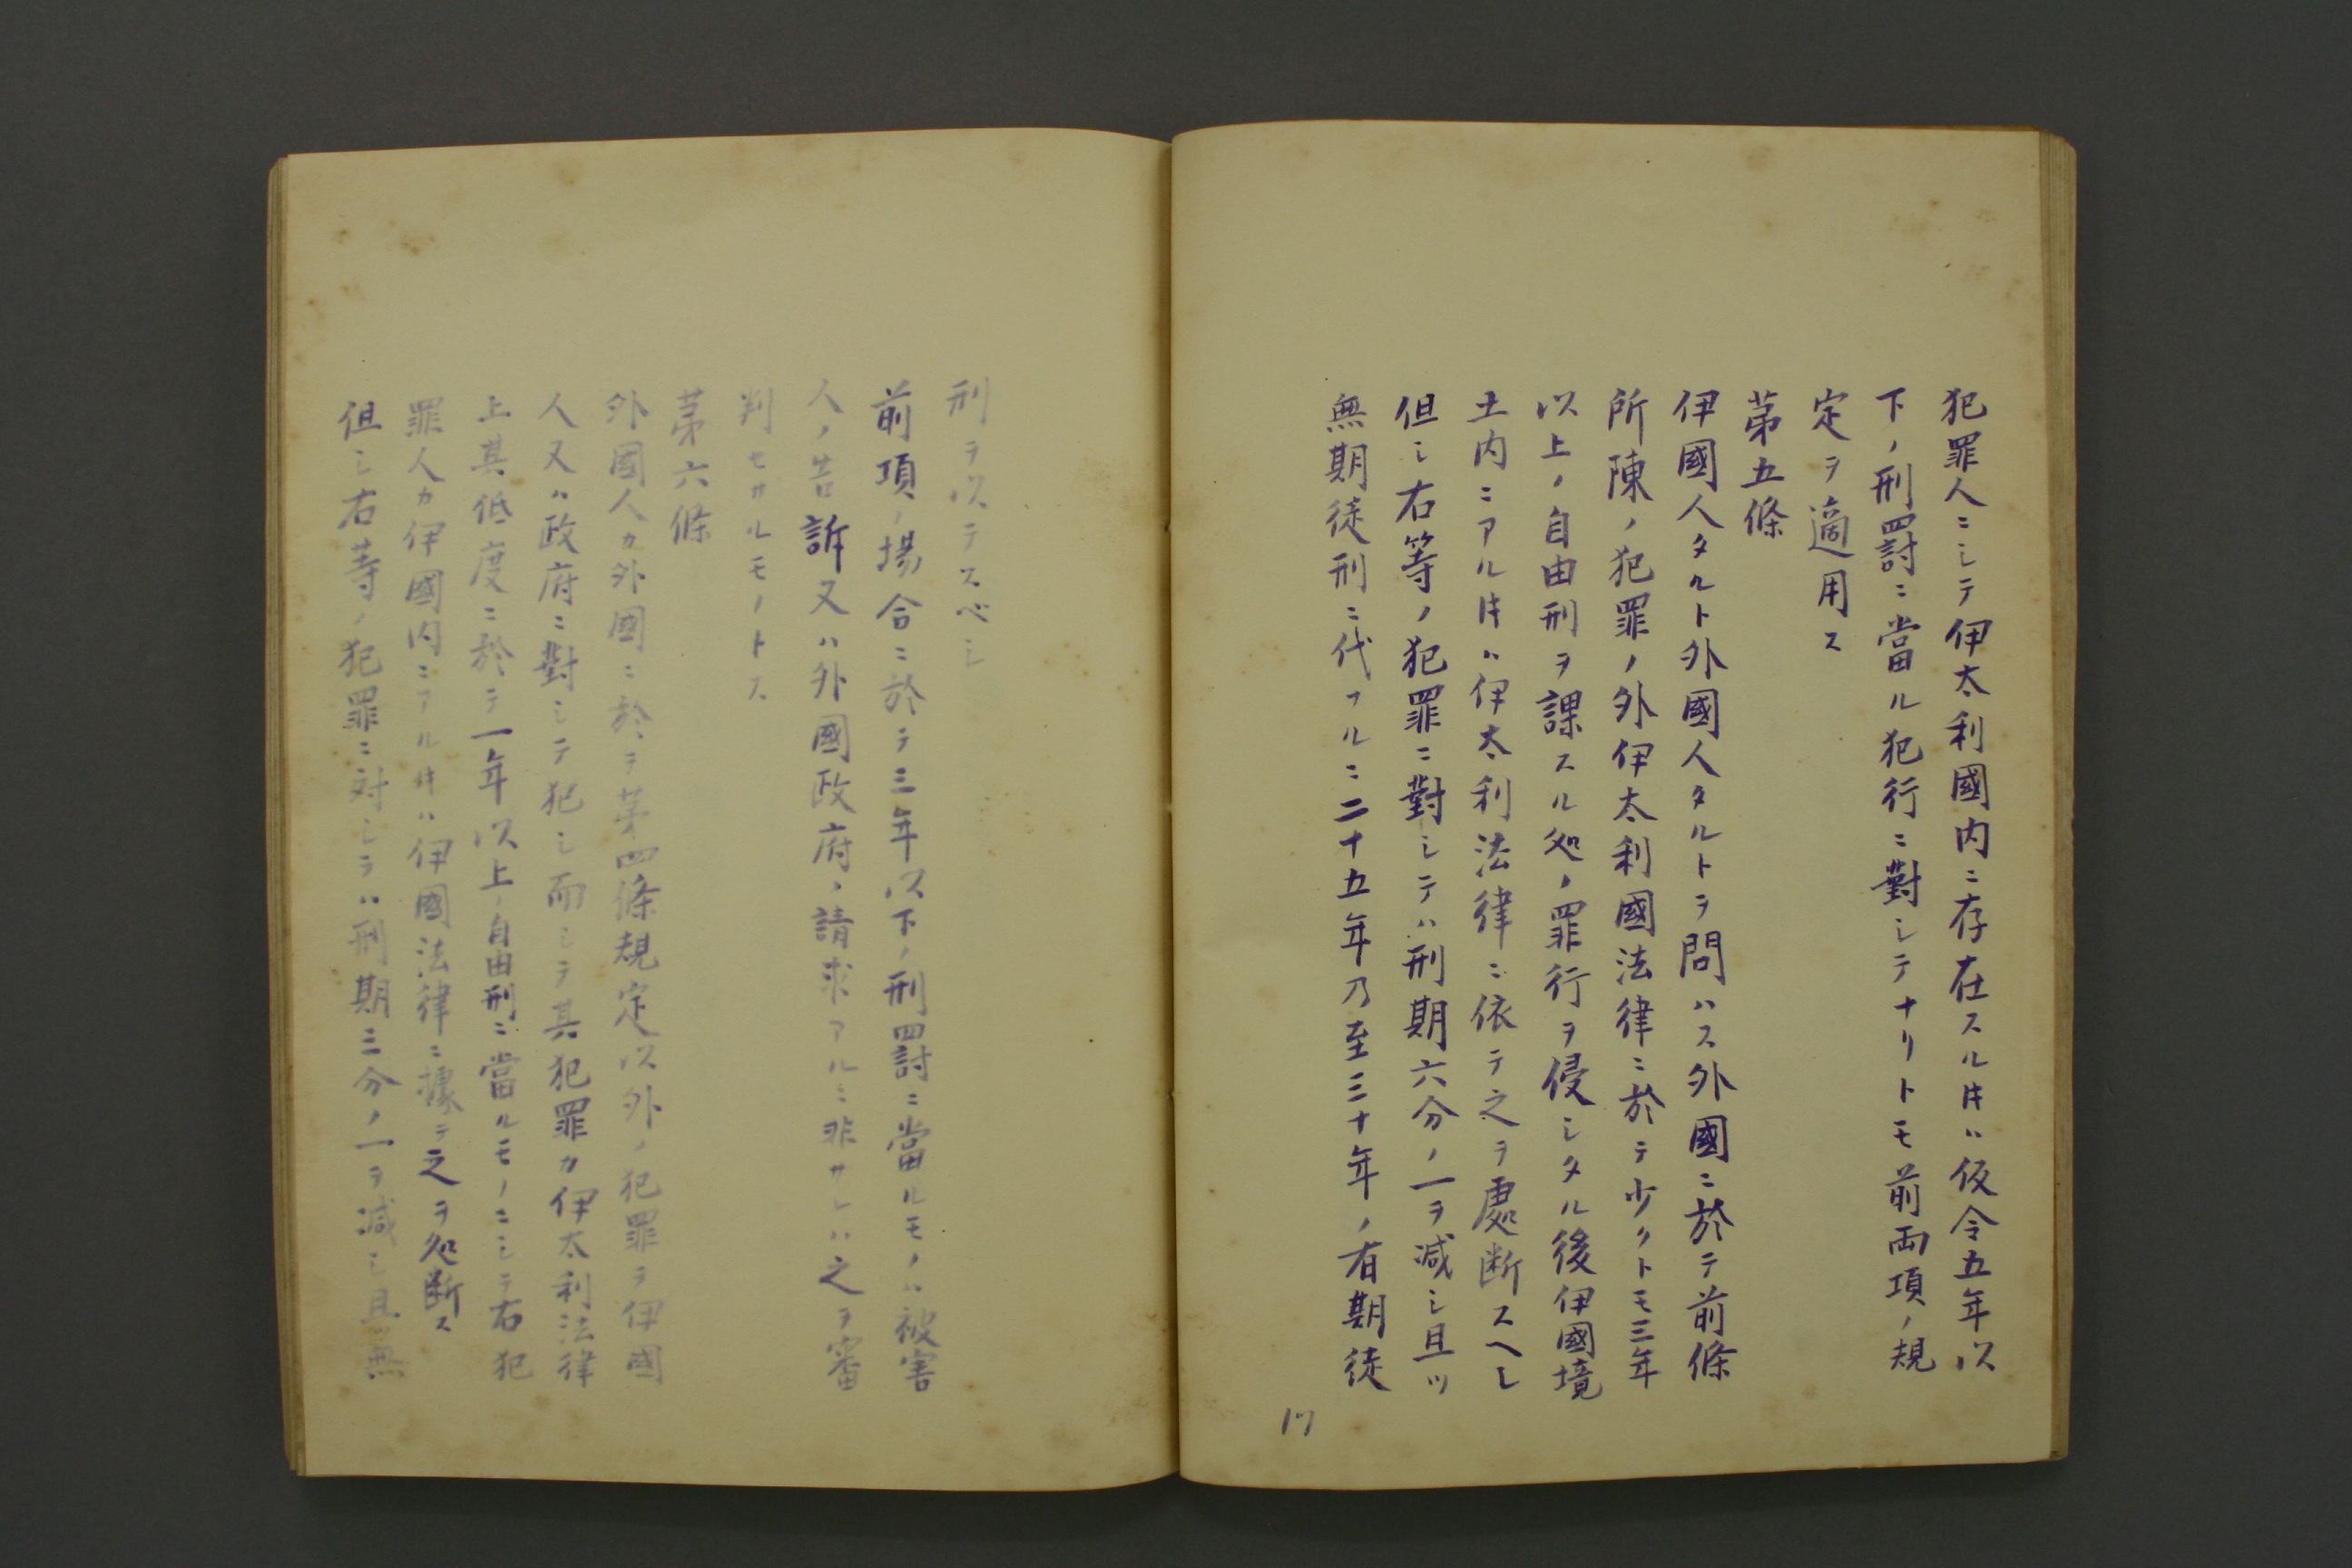 犯罪人ニシテ伊太利國内ニ存在スル片ハ仮令五年以
下ノ刑罰ニ當ル犯行ニ對シテナリトモ前両項ノ規
定ヲ適用ス
第五條
伊國人タルト外國人タルトヲ問ハス外國ニ於テ前條
所陳ノ犯罪ノ外伊太利國法律ニ於テ少クトモ三年
以上ノ自由刑ヲ課スル処ノ罪行ヲ侵シタル後伊國境
土内ニアル片ハ伊太利法律ニ依テ之ヲ處断スヘシ
但シ右等ノ犯罪ニ對シテハ刑期六分ノ一ヲ減シ且ツ
無期徒刑ニ代フルニ二十五年乃至三十年ノ有期徒
17
刑ヲ以テスベシ
前項ノ場合ニ於テ三年以下ノ刑罰ニ當ルモノハ被害
人ノ告訴又ハ外國政府ノ請求アルニ非サレハ之ヲ審
判セサルモノトス
第六條
外國人カ外國ニ於テ第四條規定以外ノ犯罪ヲ伊國
人又ハ政府ニ對シテ犯シ而シテ其犯罪カ伊太利法律
上其低度ニ於テ一年以上ノ自由刑ニ當ルモノニシテ右犯
罪人カ伊國内ニアル片ハ伊國法律ニ據テ之ヲ処断ス
但シ右等ノ犯罪ニ対シテハ刑期三分ノ一ヲ減シ且無